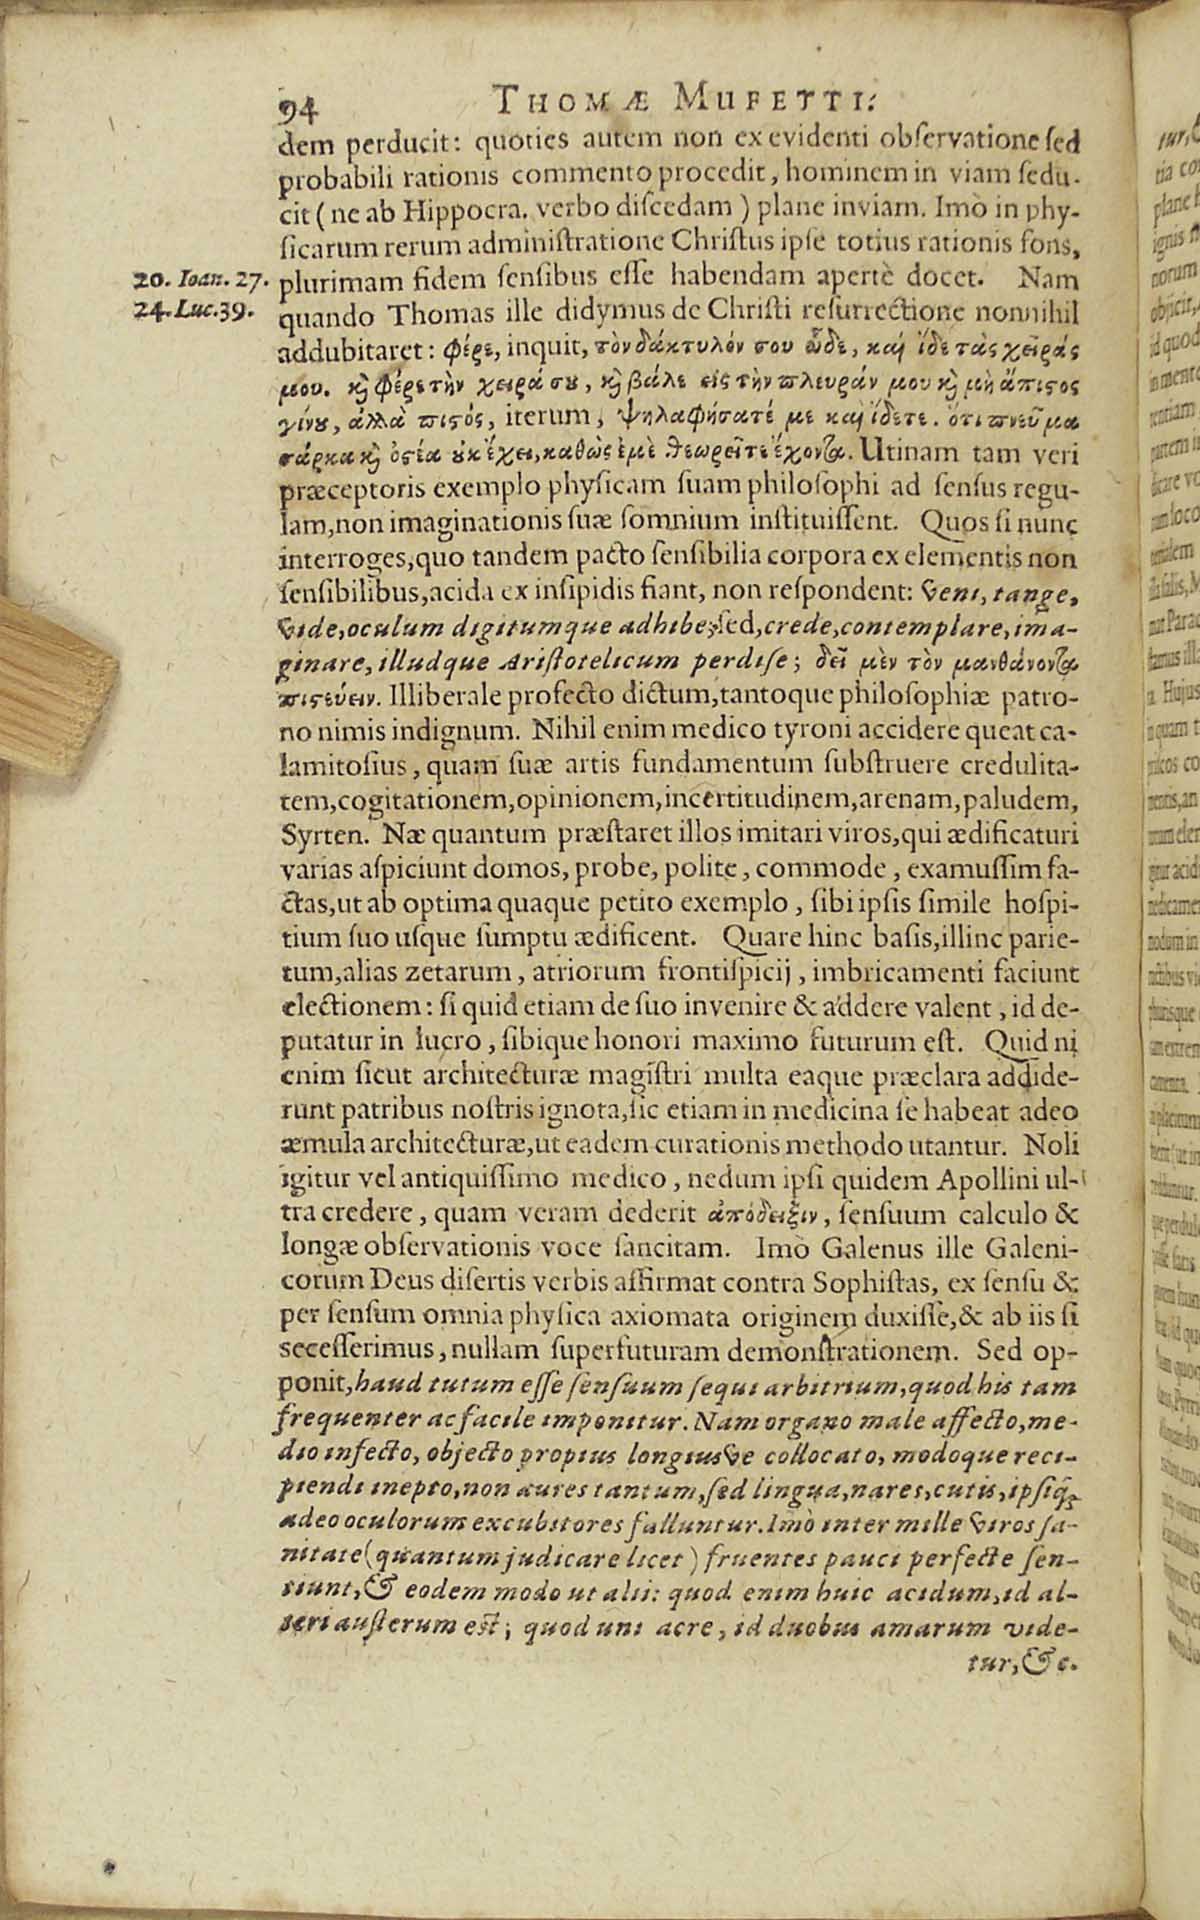 94 THOMÆ MUFETTI.
dem perducit: quoties autem non ex evidenti obſervatione ſed
probabili rationis commento procedit, hominem in viam ſedu-
cit (ne ab Hippocra. verbo diſcedam) plane inviam. Imò in phy-
ſicarum rerum adminiſtratione Chriſtus ipſe totius rationis fons,
20. Ioan. 27. plurimam fidem ſenſibus eſſe habendam apertè docet. Nam
24. Luc. 39. quando Thomas ille didymus de Chriſti reſurrectione nonnihil
addubitaret: φέρε, inquit, τὸν δάκτυλόν σου ὧδε, καὶ ἴδε τὰς χεῖράς
μου. κὶ φέρε τὴν χεῖρά σȣ, κὶ βάλε εἰς τὴν πλευράν μου κὶ μὴ ἄπιϛος
γίνȣ, ἀλλὰ πιϛός, iterum, ψηλαφήσατέ με καὶ ἴδετε. ὅτι πνεῦμα
σάρκα κὶ ὀϛέα ȣκ ἔχει, καθὼς ἐμὲ θεωρεῖτε ἔχοντα. Utinam tam veri
præceptoris exemplo phyſicam ſuam philoſophi ad ſenſus regu-
lam, non imaginationis ſuæ ſomnium inſtituiſſent. Quos ſi nunc
interroges, quo tandem pacto ſenſibilia corpora ex elementis non
ſenſibilibus, acida ex inſipidis fiant, non reſpondent: Veni, tange,
Vide, oculum digitumque adhibe; ſed, crede, contemplare, ima-
ginare, illudque Ariſtotelicum perdiſe; δεῖ μὲν τὸν μανθάνοντα
πιϛεύειν. Illiberale profecto dictum, tantoque philoſophiæ patro-
no nimis indignum. Nihil enim medico tyroni accidere queat ca-
lamitoſius, quam ſuæ artis fundamentum ſubſtruere credulita-
tem, cogitationem, opinionem, incertitudinem, arenam, paludem,
Syrten. Næ quantum præſtaret illos imitari viros, qui ædificaturi
varias aſpiciunt domos, probe, polite, commode, examuſſim fa-
ctas, ut ab optima quaque petito exemplo, ſibi ipſis ſimile hoſpi-
tium ſuo uſque ſumptu ædificent. Quare hinc baſis, illinc parie-
tum, alias zetarum, atriorum frontiſpicij, imbricamenti faciunt
electionem: ſi quid etiam de ſuo invenire & addere valent, id de-
putatur in lucro, ſibique honori maximo futurum eſt. Quid ni
enim ſicut architecturæ magiſtri multa eaque præclara addide-
runt patribus noſtris ignota, ſic etiam in medicina ſe habeat adeo
æmula architecturæ, ut eadem curationis methodo utantur. Noli
igitur vel antiquiſſimo medico, nedum ipſi quidem Apollini ul-
tra credere, quam veram dederit ἀπόδειξιν, ſenſuum calculo &
longæ obſervationis voce ſancitam. Imò Galenus ille Galeni-
corum Deus diſertis verbis affirmat contra Sophiſtas, ex ſenſu &
per ſenſum omnia phyſica axiomata originem duxiſſe, & ab iis ſi
seceſſerimus, nullam ſuperfuturam demonſtrationem. Sed op-
ponit, haud tutum eſſe ſenſuum ſequi arbitrium, quod his tam
frequenter ac facile imponitur. Nam organo male affecto, me-
dio infecto, objecto propius longiusVe collocato, modoque reci-
piendi inepto, non aures tantum, ſed lingua, nares, cutis, ipſiq;
adeo oculorum excubitores falluntur. Imò inter mille Viros ſa-
nitate (quantum judicare licet) fruentes pauci perfecte ſen-
tiunt, & eodem modo ut alii: quod enim huic acidum, id al-
teri auſterum eſt; quod uni acre, id duobus amarum vide-
tur, &c.